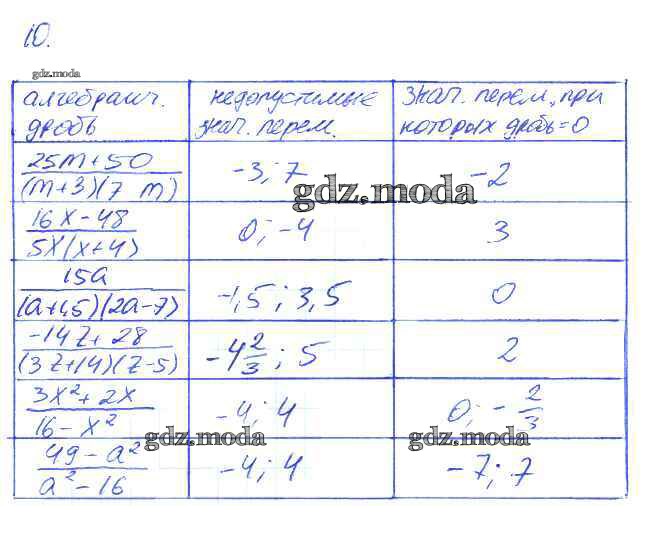 10.
gdz.moda
алгебраич. дробь | недопустимые знач. перем. | знач. перем., при которых дробь=0
25m+50 / (m+3)(7 m) | -3; 7 | -2
gdz.moda
16x-48 / 5x(x+4) | 0; -4 | 3
15a / (a+1,5)(2a-7) | -1,5; 3,5 | 0
-14z+28 / (3z+14)(z-5) | -4 2/3; 5 | 2
3x²+2x / 16-x² | -4; 4 | 0; -2/3
gdz.moda gdz.moda
49-a² / a²-16 | -4; 4 | -7; 7